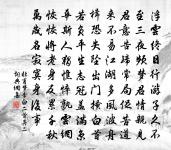 浮雲終日行游子久不
至三夜頻夢君情親見
君意告歸常局促苦道
來不易江湖多風波舟
楫恐失墜出門搔白首
若負平生志冠蓋滿京
華斯人獨憔悴孰云網
恢恢將老身反累千秋
萬歲名寂寞身後事
杜甫夢李白二首其二
詞典網